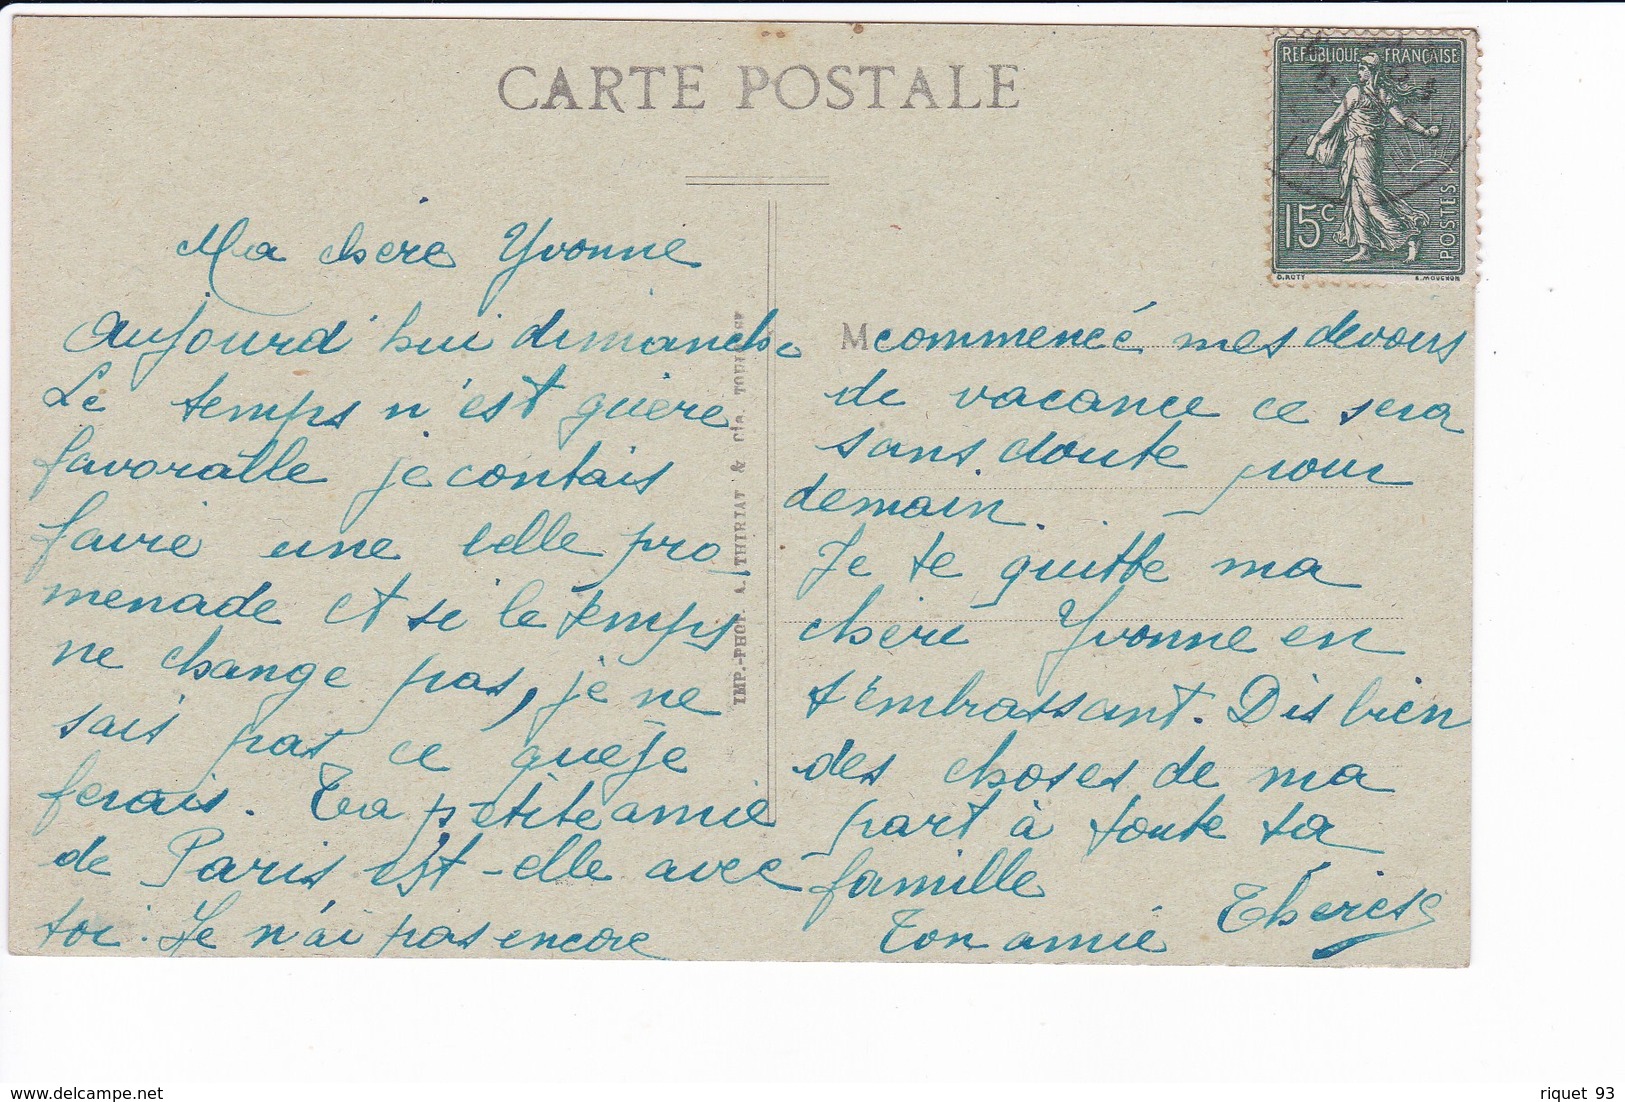 CARTE POSTALE
REPUBLIQUE FRANÇAISE
15c
POSTES
O. ROTY
E. MOUCHON
Ma chère Yvonne
Aujourd'hui dimanche
Le temps n'est guère
favorable je contais
faire une belle pro
menade et si le temps
ne change pas, je ne
sais pas ce que je
ferais. Ta petite amie
de Paris est-elle avec
toi. Je n'ai pas encore
IMP.-PHOT. A. THIRIAT & Cie. TOULOUSE
M
commencé mes devoirs
de vacance ce sera
sans doute pour
demain.
Je te quitte ma
chère Yvonne en
t'embrassant. Dis bien
des choses de ma
part à toute ta
famille
Ton amie Thérèse
riquet 93